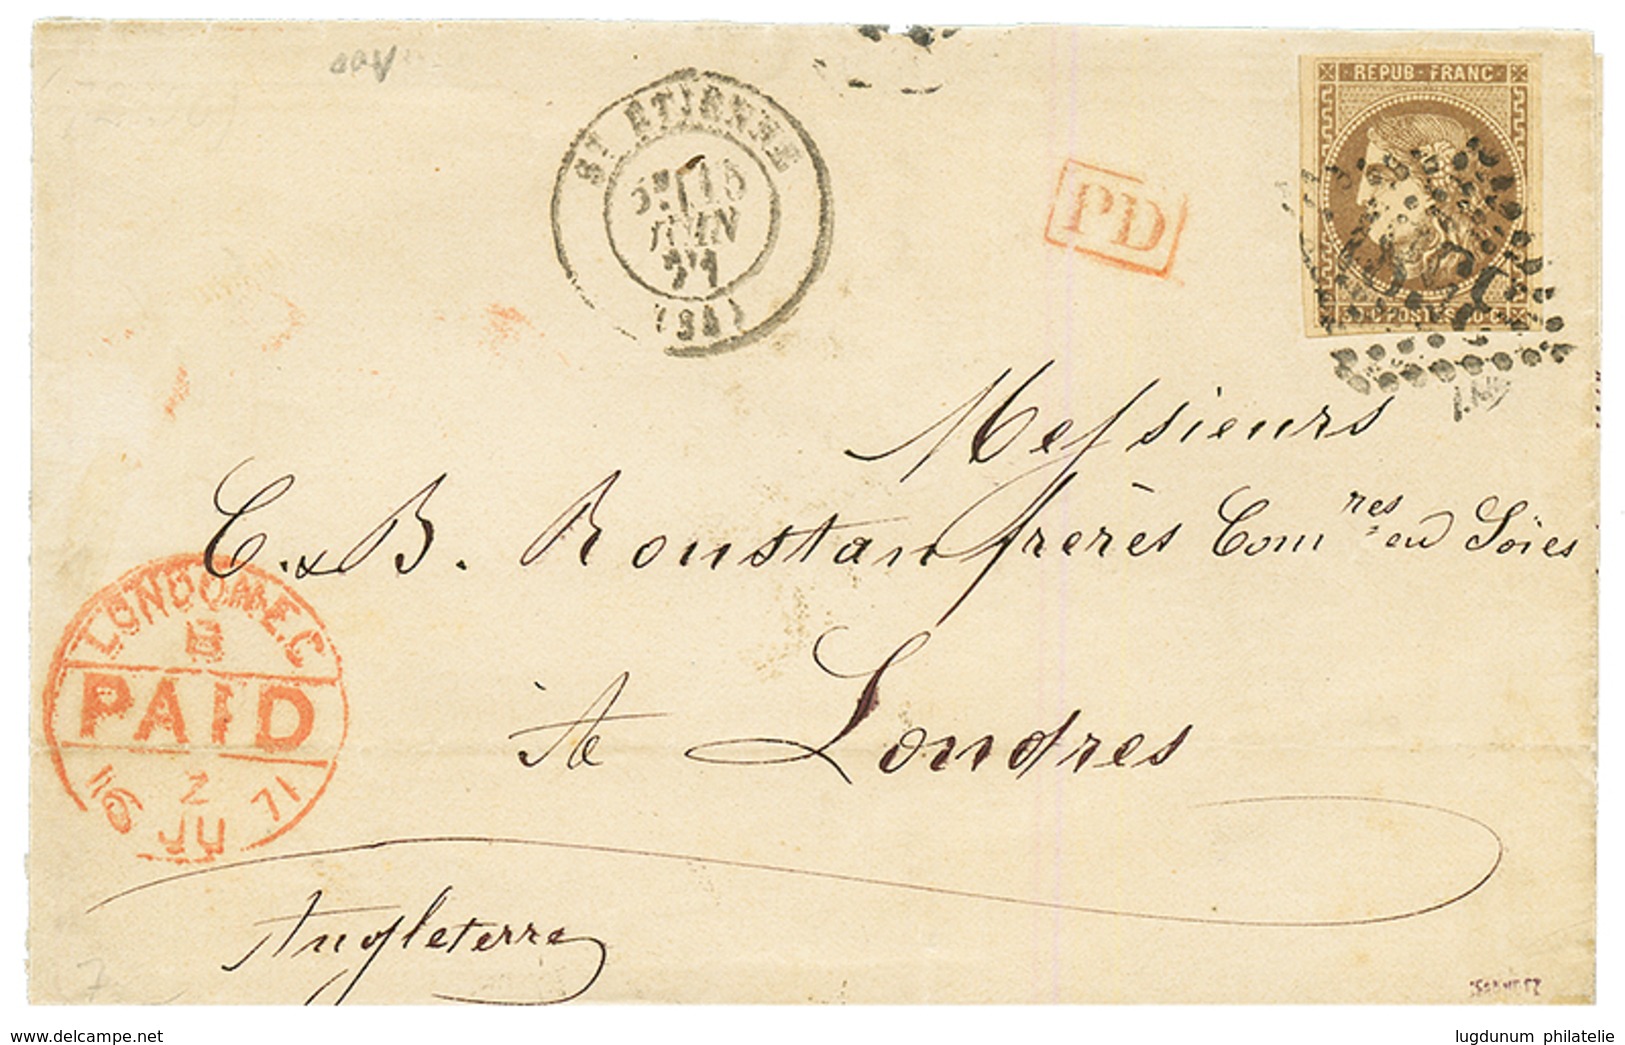 REPUB · FRANC
ST ETIENNE
JUIN
71
PD
POSTES
Messieurs
C. & B. Roustan frères Comres en Soies
à Londres
LONDON · E.C
B
PAID
16 JU 71
Angleterre
7
delcampe.net
lugdunum philatelie